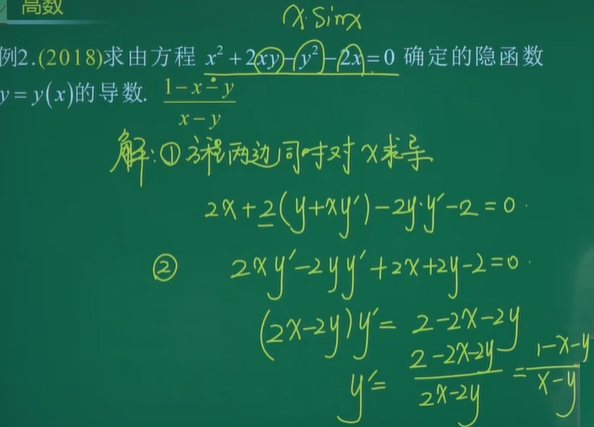 高数
x·sinx
例2.(2018)求由方程 x²+2xy-y²-2x=0 确定的隐函数
y=y(x)的导数. (1-x-y)/(x-y)
解:①方程两边同时对x求导
2x+2(y+xy')-2y·y'-2=0.
② 2xy'-2yy'+2x+2y-2=0.
(2x-2y)y'=2-2x-2y
y'=(2-2x-2y)/(2x-2y)=(1-x-y)/(x-y)